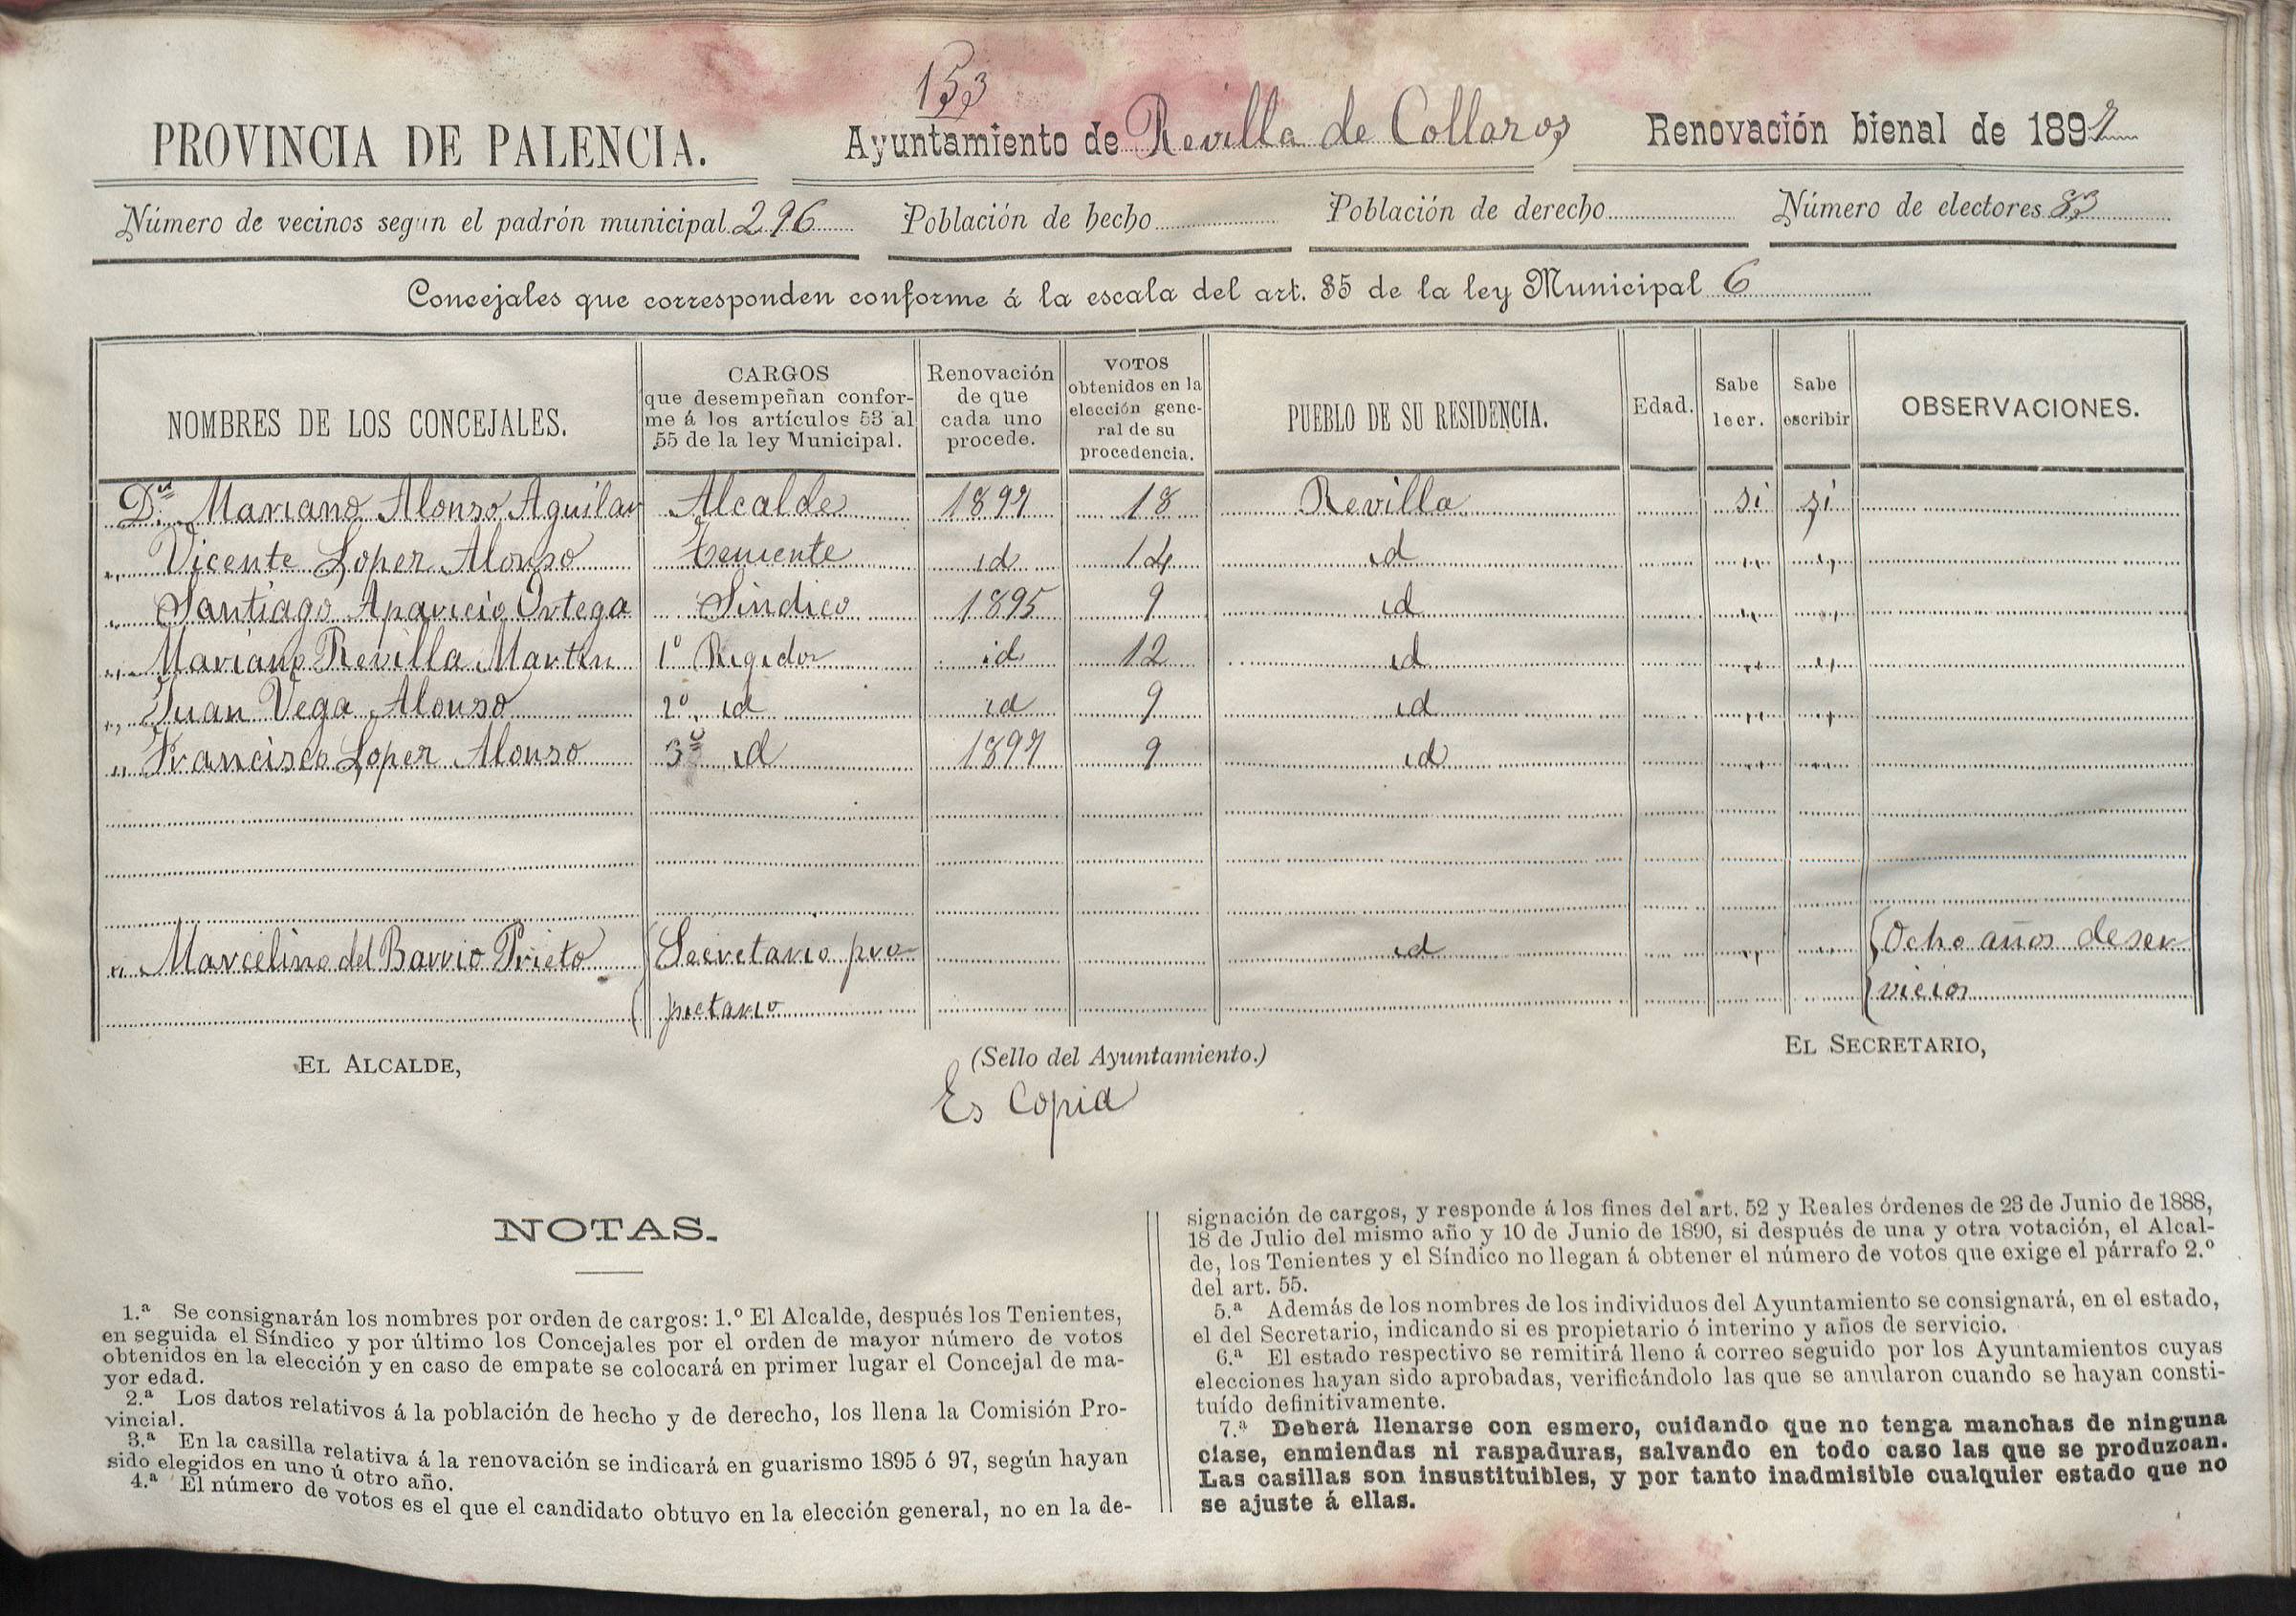 153
PROVINCIA DE PALENCIA.
Ayuntamiento de Revilla de Collazos
Renovación bienal de 1897
Número de vecinos según el padrón municipal 296
Población de hecho
Población de derecho
Número de electores 83
Concejales que corresponden conforme á la escala del art. 35 de la ley Municipal 6
NOMBRES DE LOS CONCEJALES.
CARGOS
que desempeñan confor-
me á los artículos 53 al
55 de la ley Municipal.
Renovación
de que
cada uno
procede.
VOTOS
obtenidos en la
elección gene-
ral de su
procedencia.
PUEBLO DE SU RESIDENCIA.
Edad.
Sabe
leer.
Sabe
escribir
OBSERVACIONES.
Dn. Mariano Alonso Aguilar Alcalde 1897 18 Revilla si si
„ Vicente Loper Alonso Teniente id 14 id „ „
„ Santiago Aparicio Ortega Sindico 1895 9 id „ „
„ Mariano Revilla Martin 1º Regidor id 12 id „ „
„ Juan Vega Alonso 2º id id 9 id „ „
„ Francisco Loper Alonso 3º id 1897 9 id „ „
„ Marcelino del Barrio Prieto Secretario pro- id „ Ocho años de ser-
pietario vicios
EL ALCALDE,
(Sello del Ayuntamiento.)
EL SECRETARIO,
Es Copia
NOTAS.
1.ª Se consignarán los nombres por orden de cargos: 1.º El Alcalde, después los Tenientes,
en seguida el Síndico y por último los Concejales por el orden de mayor número de votos
obtenidos en la elección y en caso de empate se colocará en primer lugar el Concejal de ma-
yor edad.
2.ª Los datos relativos á la población de hecho y de derecho, los llena la Comisión Pro-
vincial.
3.ª En la casilla relativa á la renovación se indicará en guarismo 1895 ó 97, según hayan
sido elegidos en uno ú otro año.
4.ª El número de votos es el que el candidato obtuvo en la elección general, no en la de-
signación de cargos, y responde á los fines del art. 52 y Reales órdenes de 23 de Junio de 1888,
18 de Julio del mismo año y 10 de Junio de 1890, si después de una y otra votación, el Alcal-
de, los Tenientes y el Síndico no llegan á obtener el número de votos que exige el párrafo 2.º
del art. 55.
5.ª Además de los nombres de los individuos del Ayuntamiento se consignará, en el estado,
el del Secretario, indicando si es propietario ó interino y años de servicio.
6.ª El estado respectivo se remitirá lleno á correo seguido por los Ayuntamientos cuyas
elecciones hayan sido aprobadas, verificándolo las que se anularon cuando se hayan consti-
tuído definitivamente.
7.ª Deberá llenarse con esmero, cuidando que no tenga manchas de ninguna
clase, enmiendas ni raspaduras, salvando en todo caso las que se produzcan.
Las casillas son insustituibles, y por tanto inadmisible cualquier estado que no
se ajuste á ellas.